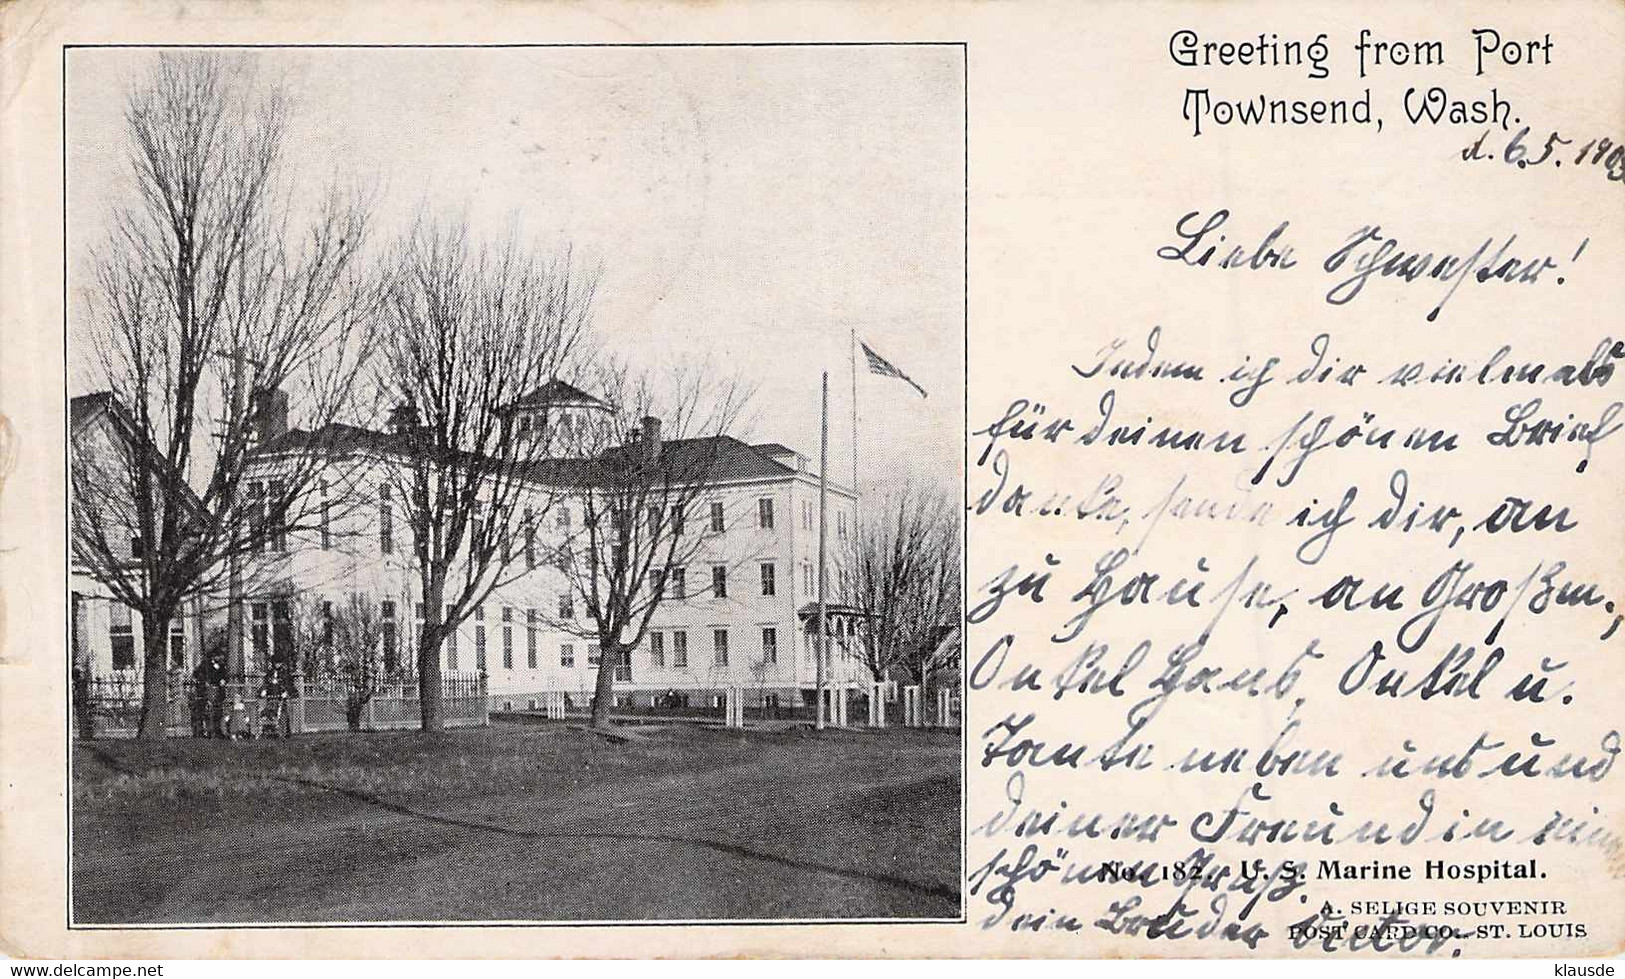 Greeting from Port
Townsend, Wash.
d. 6.5.1905
Liebe Schwester!
Indem ich dir vielmals
für deinen schönen Brief
danke, sende ich dir, an
zu Hause, an Großm.,
Onkel Hans, Onkel u.
Tante neben uns und
deiner Freundin einen
schönen Gruß.
dein Bruder Victor.
No. 182. U. S. Marine Hospital.
A. SELIGE SOUVENIR
POST CARD CO.- ST. LOUIS
delcampe.net
klausde